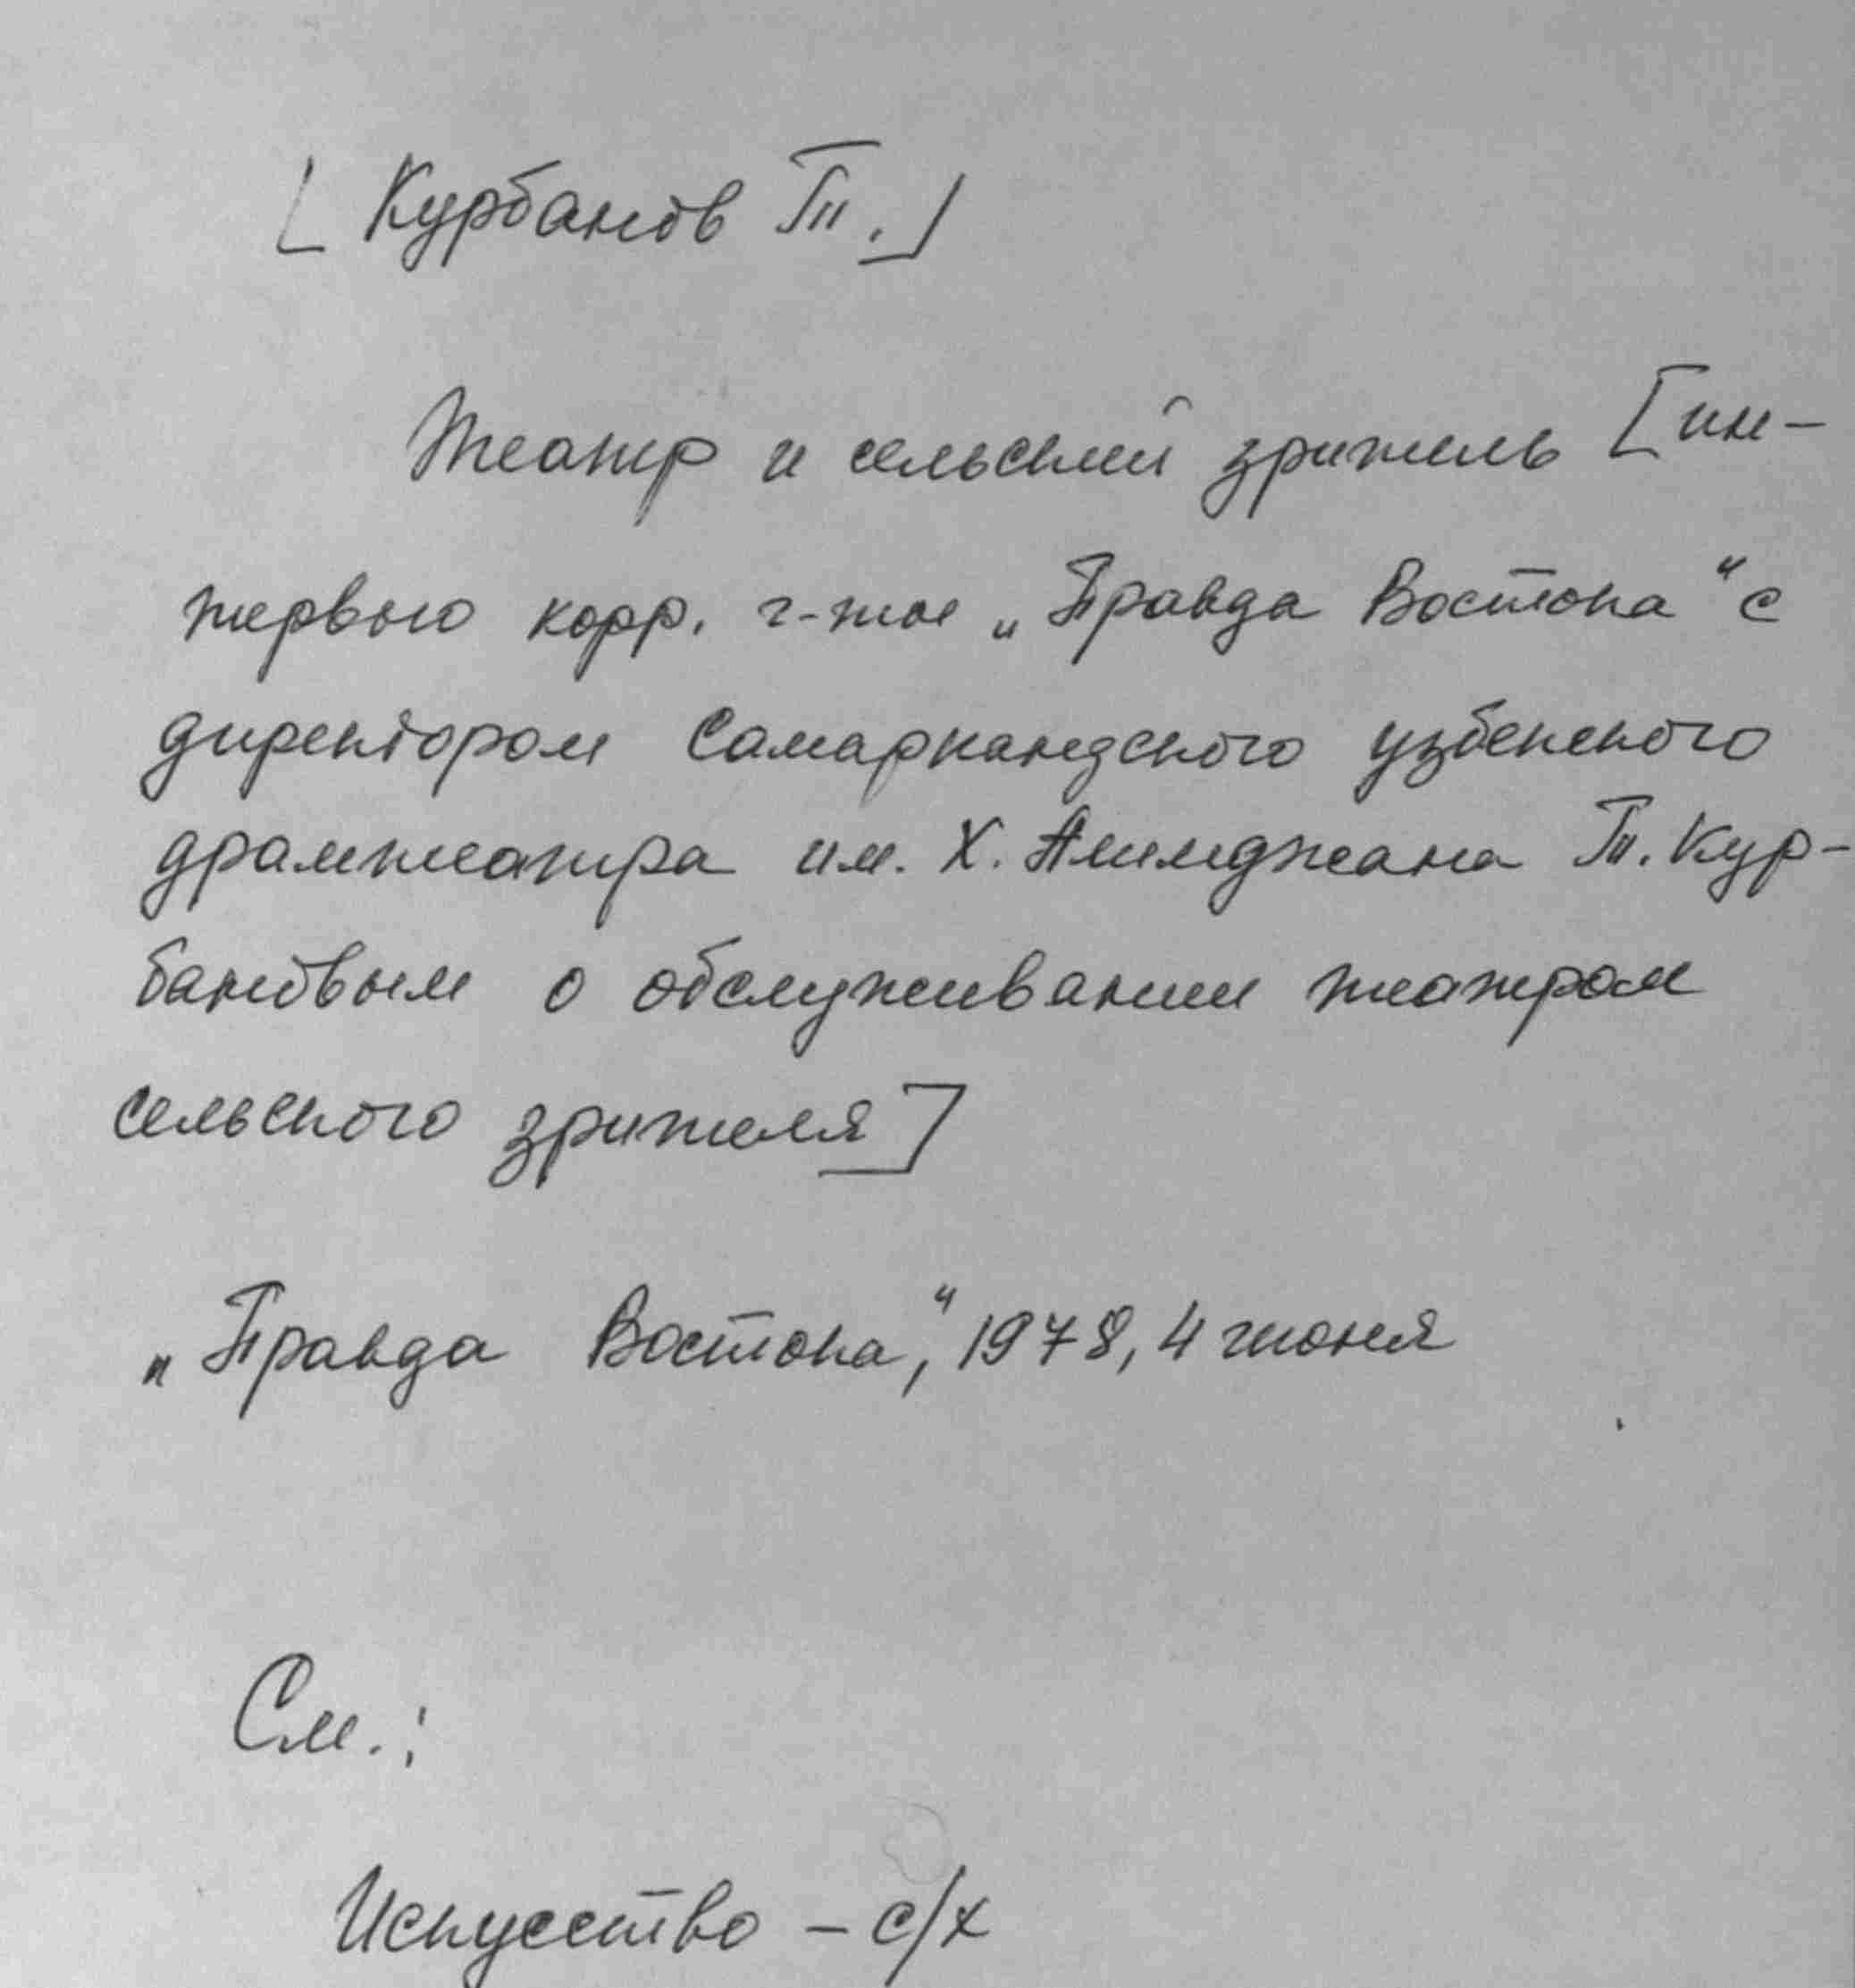 [Курбанов Т.]
Театр и сельский зритель [ин-
тервью корр. г-ты „Правда Востока“ с
директором Самаркандского узбекского
драмтеатра им. Х. Алимджана Т. Кур-
бановым о обслуживании театром
сельского зрителя]
„Правда Востока“, 1978, 4 июня
См.:
Искусство – с/х